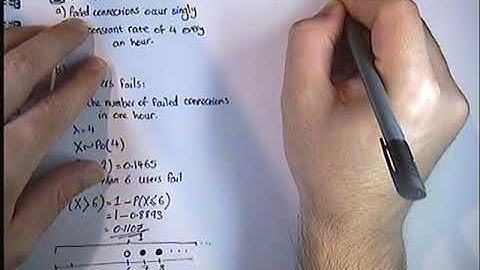 a) Failed connections occur singly
constant rate of 4 every
an hour.
users fails:
the number of failed connections
in one hour.
λ=4
X~Po(4)
2) = 0.1465
than 6 users fail
(X>6) = 1 - P(X≤6)
= 1 - 0.8893
= 0.1107
6 7 8